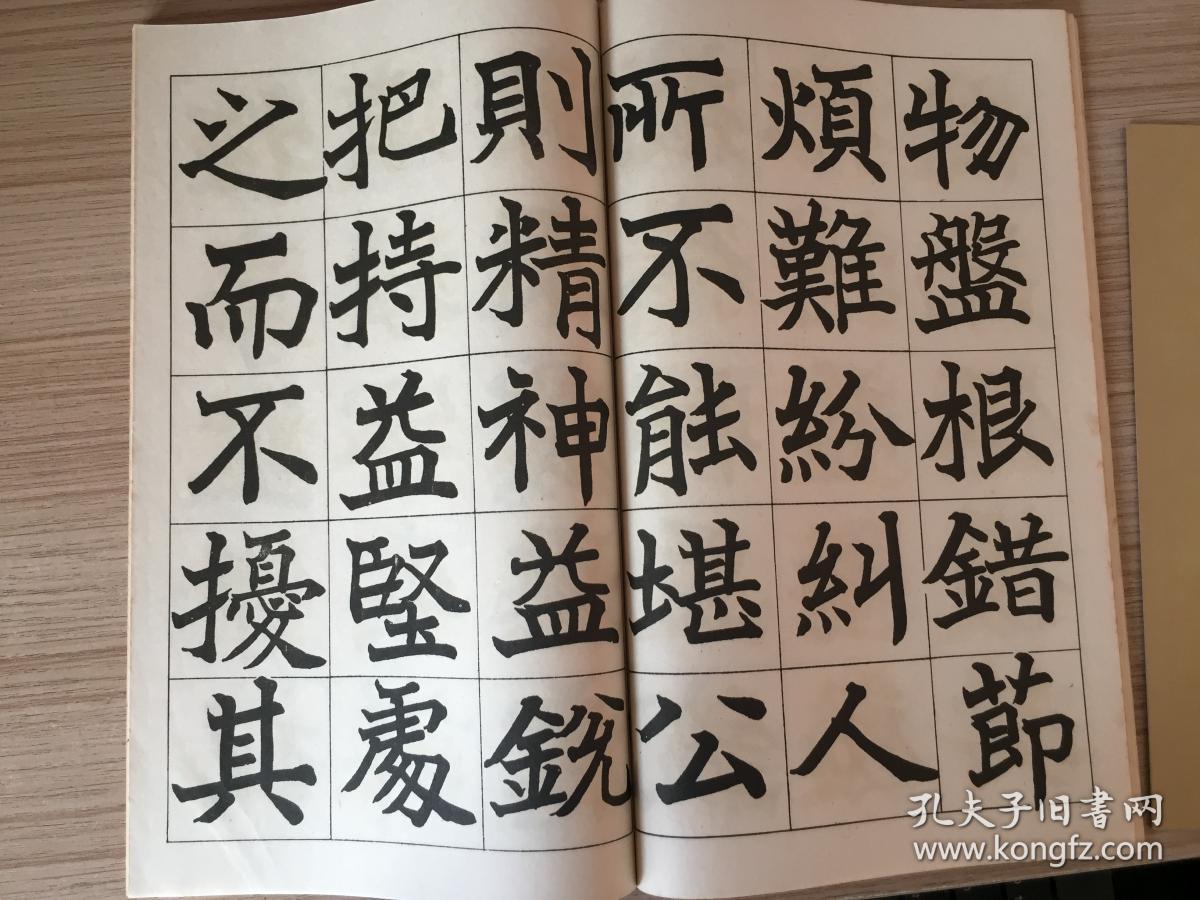 物盤根錯節
煩難紛糾人
所不能堪公
則精神益銳
把持益堅處
之而不擾其
孔夫子旧書网
www.kongfz.com